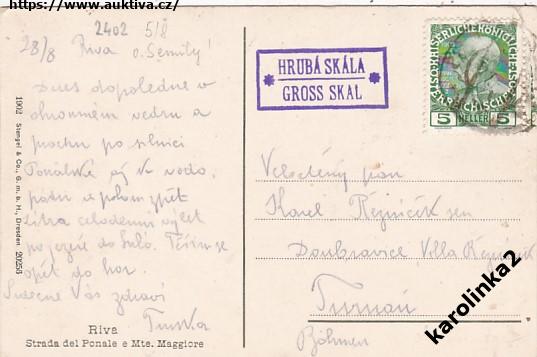 https://www.auktiva.cz/
2402 5/8
28/8 Riva o. Semily
Dnes dopoledne v
ohromném vedru a
prachu po silnici
Ponalské až k vodo
pádu a potom zpět
Zítra celodenní výlet
po jezeře do Saló. Těším se
opět do hor.
Srdečně Vás zdraví
Turska
1902 Stengel & Co., G. m. b. H., Dresden 20256
Riva
Strada del Ponale e Mte. Maggiore
HRUBÁ SKÁLA
GROSS SKAL
5 HELLER 5
Velectěný pan
Karel Rezníček sen
Doubravice Villa Rezníček
Turnau
Böhmen
karolinka2